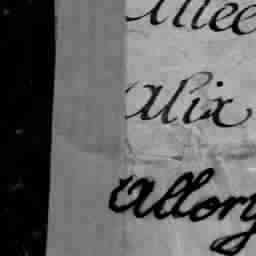 Allee
Alix
Allory